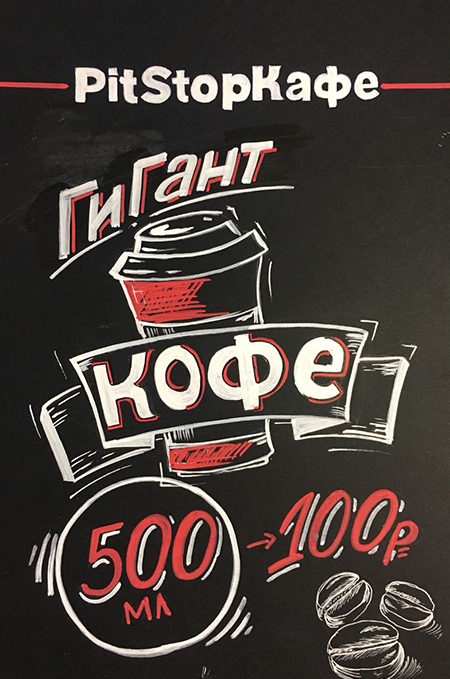 PitStopКафе
ГиГант
кофе
500 → 100р
мл